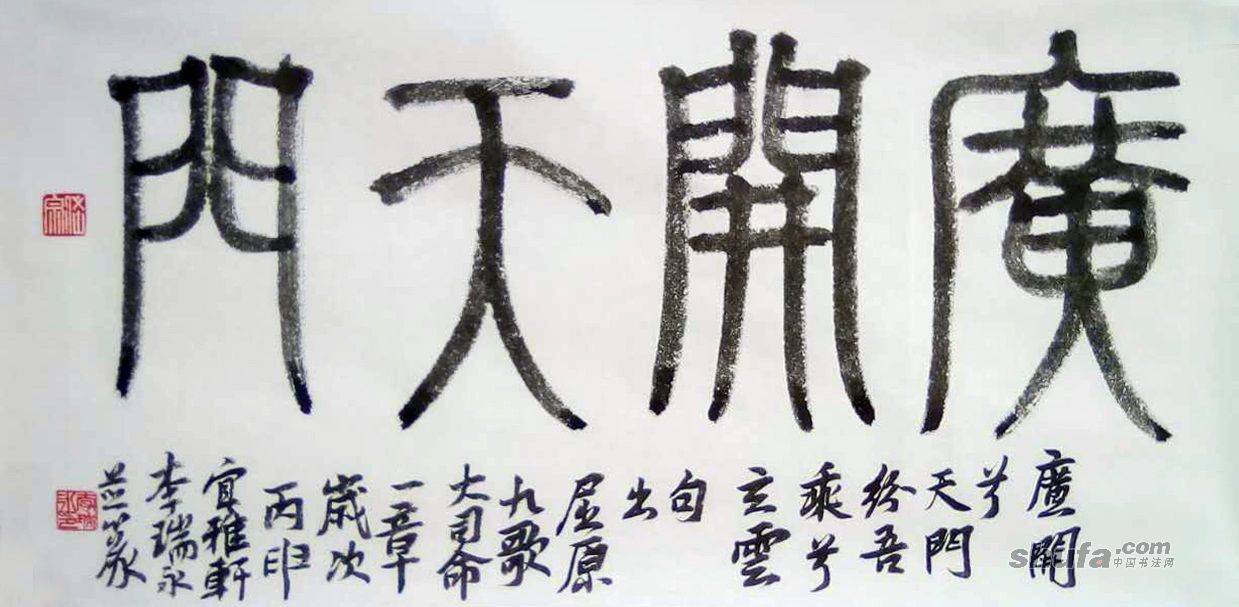 廣開天門
廣開
兮
天門
紛吾
乘兮
玄雲
句
出
屈原
九歌
大司命
一章
歲次
丙申
宜雅軒
李瑞永
並篆
shufa.com
中国书法网